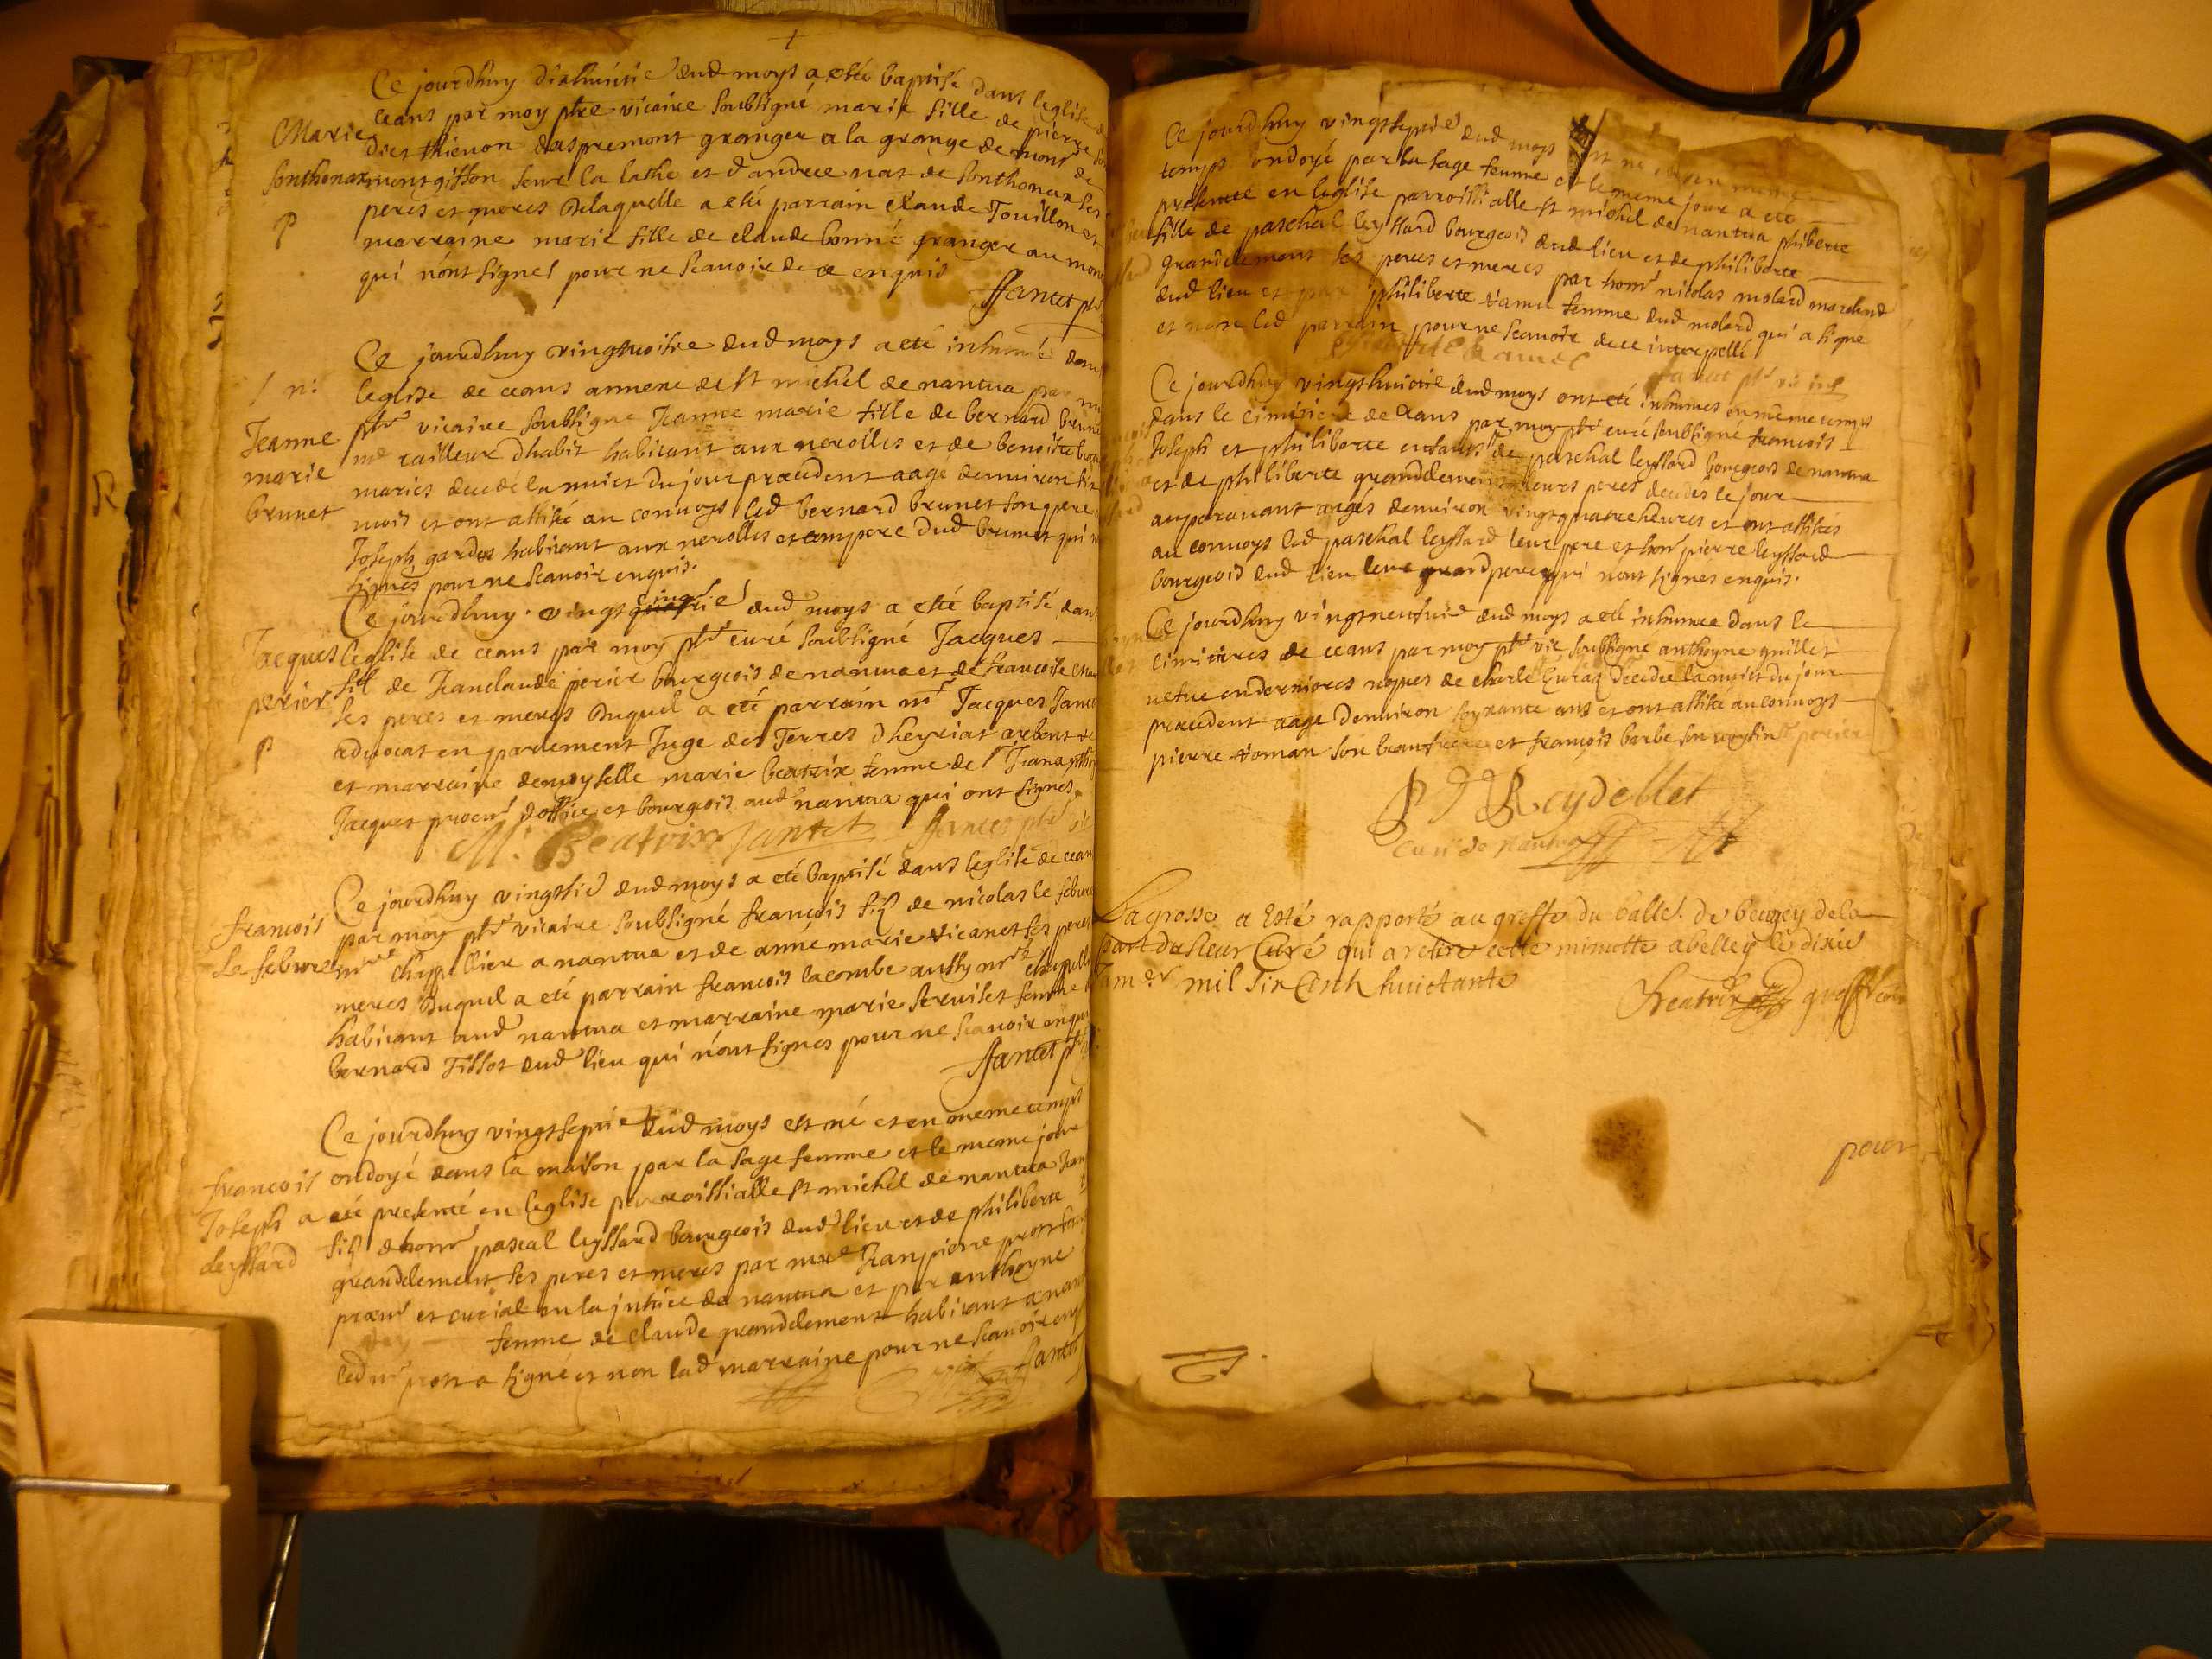 Ce jourdhuy dixhuitie dud moys a esté baptisé dans leglise de
ceans par moy ptre vicaire soubsigné marie fille de pierre
Marie
dict thieuon daspremont granger a la grange de monsr de
Sonthonax
montgiffon seur la lathe et dandree nat de Sonthonax ses
peres et meres Delaquelle a esté parrain claude Touillon et
P
marraine marie fille de claude bonné granger au
qui nont signes pour ne scauoir de ce enquis
Jantet ptre
Ce jourdhuy vingtroisie dud moys a eté inhumé dans
leglise de ceans annexe de St michel de nantua par
ptre vicaire soubsigne Jeanne marie fille de bernard brunet
Jeanne
marie
brunet
me tailleur dhabit habitant aux nerolles et de benoiste
maries decede la nuict du jour precedent aage denuiron six
mois et ont assisté au conuoys led bernard brunet son pere
Joseph gardes habitant aux nerolles et compere dud brunet qui
signés pour ne scauoir enquis.
Ce jourdhuy vingt cinqie dud moys a esté baptisé dans
Jacques
perier
leglise de ceans par moy ptre curé soubsigné Jacques
fils de Jeanclaude perier bourgeois de nantua et de francoise
ses peres et meres Duquel a eté parrain mr Jacques Jantet
P
aduocat en parlement Juge des Terres dheyriat arbent
et marraine demoyselle marie beatrix femme de sr
Jacques procur doffice et bourgeois aud nantua qui ont signes
M. Beatrix Jantet Jantet ptre
Ce jourdhuy vingtsie dud moys a eté baptisé dans leglise de ceans
francois
Le febure
par moy ptre vicaire soubsigné francois fils de nicolas le febure
mre chappellier a nantua et de anne marie vicanet ses peres
meres Duquel a eté parrain francois lacombe aussy mre chappellier
habitant aud nantua et marraine marie seruiset femme
bernard Tissot dud lieu qui nont signes pour ne scauoir enquis
Jantet ptre
Ce jourdhuy vingtseptie dud moys est né et en meme temps
francois
Joseph
leyssard
ondoyé dans la maison par la sage femme et le meme jour
a eté presenté en leglise parroissialle St michel de nantua
fils dhonr pascal leyssard bourgeois dud lieu et de philiberte
grandclement ses peres et meres par mre Jeanpierre prost
procur et curial en la justice de nantua et par anthoyne
femme de claude grandclement habitant a nantua
led mr prost a signe et non lad marraine pour ne scauoir enquis
Jantet
Ce jourdhuy vingtseptie dud moys est né et en meme
temps ondoyé par la sage femme et le meme jour a eté
presenté en leglise parroissialle St michel de nantua philiberte
fille de paschal leyssard bourgeois dud lieu et de philiberte
grandclement ses peres et meres par honr nicolas molard marchand
dud lieu et par philiberte femme dud molard qui a signe
et non led parrain pour ne scauoir de ce interpellé
Jantet ptre vic
Ce jourdhuy vingthuictie dud moys ont eté inhumes en meme temps
dans le cimitiere de ceans par moy ptre curé soubsigné francois
Joseph et philiberte enfants de paschal leyssard bourgeois de nantua
et de philiberte grandclement leurs peres decedés le jour
auparauant aagés denuiron vingtquatre heures et ont assistés
au conuoys led paschal leyssard leur pere et honr pierre leyssard
bourgeois dud lieu leur grand pere qui nont signés enquis.
Ce jourdhuy vingtneufuie dud moys a eté inhumee dans le
cimitieres de ceans par moy ptre vic soubsigne anthoyne guillet
vefue en dernieres nopces de charle decedee la nuict du jour
precedent aage denuiron soyxante ans et ont assisté au conuoys
pierre roman son beaufrere et francois barbe son voysin
P J Reydellet
Curé de Nantua
La grosse a esté rapporté au greffe du balle. de beugey de la
part du sieur Curé qui a retiré cette minutte a belley le dixie
mil six cent huictante
Beatrix greffier
pour